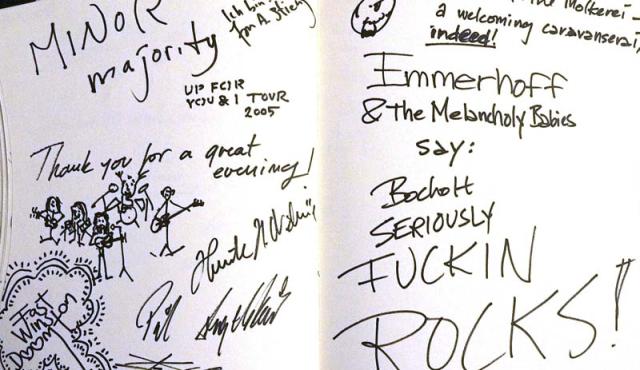 MINOR
majority
Ich bin
UP FOR
YOU & I TOUR
2005
Thank you for a great
evening!
Fast
Winston
the Molkerei -
a welcoming caravanserai,
indeed!
Immerhoff
& The Melancholy Babies
say:
Bocholt
SERIOUSLY
FUCKIN
ROCKS!